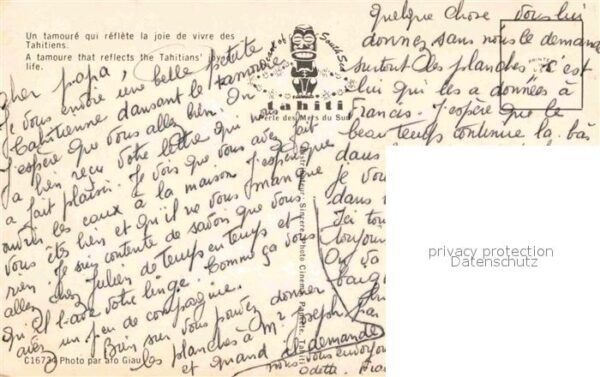 Un tamouré qui réflète la joie de vivre des
Tahitiens.
A tamoure that reflects the Tahitians'
life.
Heart of South Seas
tahiti
Perle des Mers du Sud
Cher papa,
Je vous envoie une belle petite
Tahitienne dansant le tamouré
J'espère que vous allez bien. On
a bien reçu votre lettre qui nous
a fait plaisir. Je vois que vous avez fait
les eaux à la maison. J'espère que
vous êtes bien et qu'il ne vous manque
rien. Je suis contente de savoir que vous
allez chez Julien de temps en temps et
votre linge. Comme ça vous
avez un peu de compagnie.
Bien sur vous pouvez donner
les planches à Mr Joseph
et quand
quelque chose vous lui
donnez sans nous le demander
surtout des planches, c'est
lui qui les a données à
Francis. J'espère que le
beau temps continue là-bas
dans
Je vous
dans
Ici tou
toujours
On va
le demande
nous vous envoyons
Odette.
Distributeur: Sincere, Photo Cinema, Papeete, Tahiti
C16734 Photo par Giau
privacy protection
Datenschutz